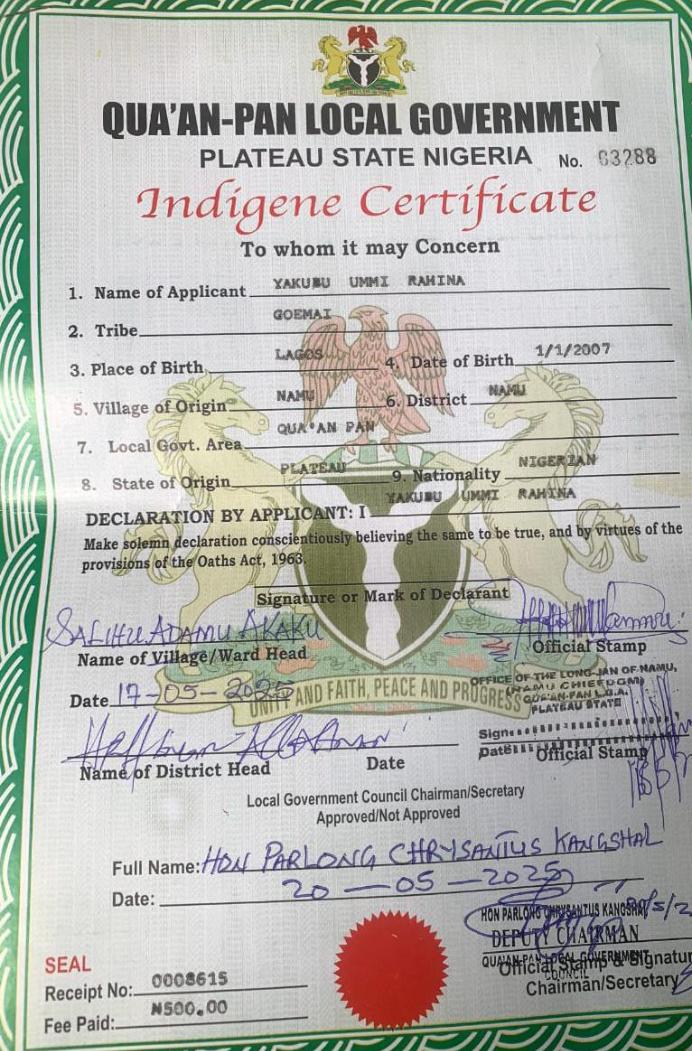 QUA'AN-PAN LOCAL GOVERNMENT
PLATEAU STATE NIGERIA No. 03288
Indigene Certificate
To whom it may Concern
1. Name of Applicant YAKUBU UMMI RAHINA
2. Tribe GOEMAI
3. Place of Birth LAGOS 4. Date of Birth 1/1/2007
5. Village of Origin NAMU 6. District NAMU
7. Local Govt. Area QUA'AN PAN
8. State of Origin PLATEAU 9. Nationality NIGERIAN
DECLARATION BY APPLICANT: I YAKUBU UMMI RAHINA
Make solemn declaration conscientiously believing the same to be true, and by virtues of the
provisions of the Oaths Act, 1963.
Signature or Mark of Declarant
SALIHU ADAMU AKAKU
Name of Village/Ward Head Official Stamp
Date 17-05-2025
UNITY AND FAITH, PEACE AND PROGRESS
OFFICE OF THE LONG-JAN OF NAMU,
(NAMU CHIEFDOM)
QUA'AN-PAN L.G.A.
PLATEAU STATE
Sign
Date
Name of District Head Date Official Stamp
Local Government Council Chairman/Secretary
Approved/Not Approved
Full Name: HON PARLONG CHRYSANTUS KANGSHAL
Date: 20-05-2025
HON PARLONG CHRYSANTUS KANGSHAL
DEPUTY CHAIRMAN
QUA'AN-PAN LOCAL GOVERNMENT
COUNCIL
Official Stamp & Signatur
Chairman/Secretary
SEAL
Receipt No: 0008615
Fee Paid: ₦500.00